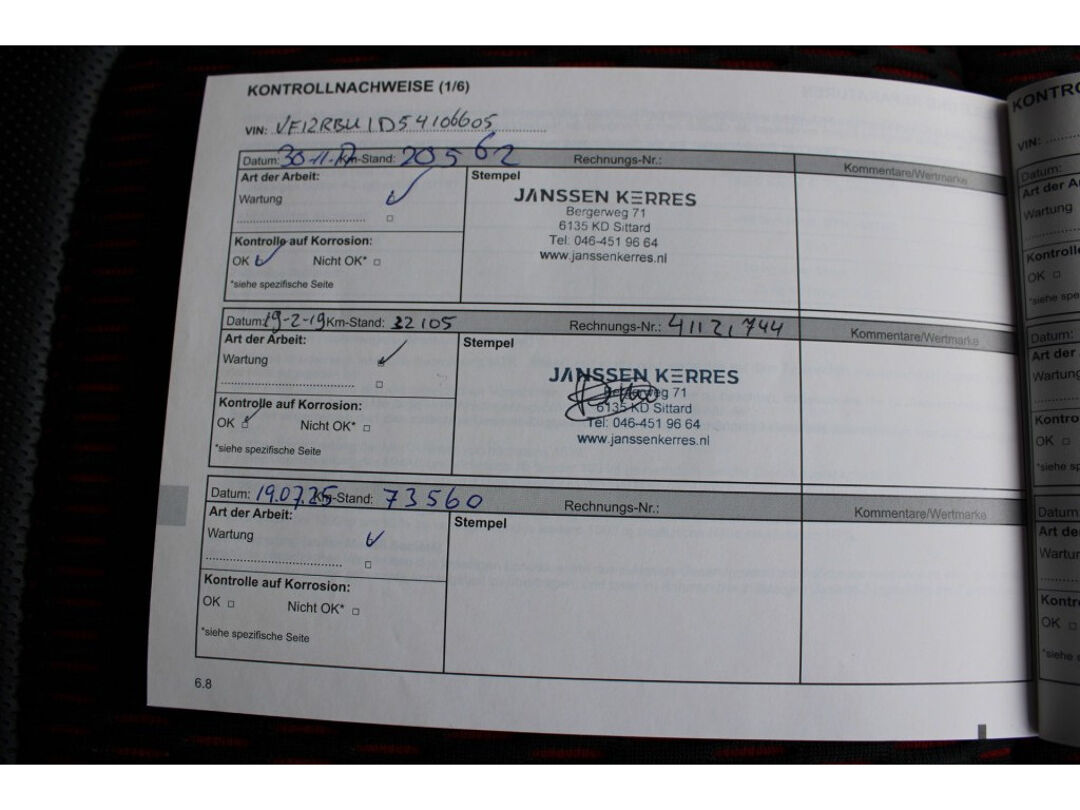 KONTROLLNACHWEISE (1/6)
VIN: VF12RBU1D54106605
Datum: 30-11-17 Km-Stand: 20562 Rechnungs-Nr.: Kommentare/Wertmarke
Art der Arbeit: Stempel
Wartung
JANSSEN KERRES
Bergerweg 71
6135 KD Sittard
Tel: 046-451 96 64
www.janssenkerres.nl
Kontrolle auf Korrosion:
OK Nicht OK*
*siehe spezifische Seite
Datum: 19-2-19 Km-Stand: 32105 Rechnungs-Nr.: 41121744 Kommentare/Wertmarke
Art der Arbeit: Stempel
Wartung
JANSSEN KERRES
Bergerweg 71
6135 KD Sittard
Tel: 046-451 96 64
www.janssenkerres.nl
Kontrolle auf Korrosion:
OK Nicht OK*
*siehe spezifische Seite
Datum: 19.07.25 Km-Stand: 73560 Rechnungs-Nr.: Kommentare/Wertmarke
Art der Arbeit: Stempel
Wartung
Kontrolle auf Korrosion:
OK Nicht OK*
*siehe spezifische Seite
6.8
KONTRO
VIN:
Datum:
Art der A
Wartung
Kontrolle
OK
*siehe spe
Datum:
Art der
Wartung
Kontro
OK
*siehe sp
Datum
Art de
Wartu
Kontr
OK
*siehe